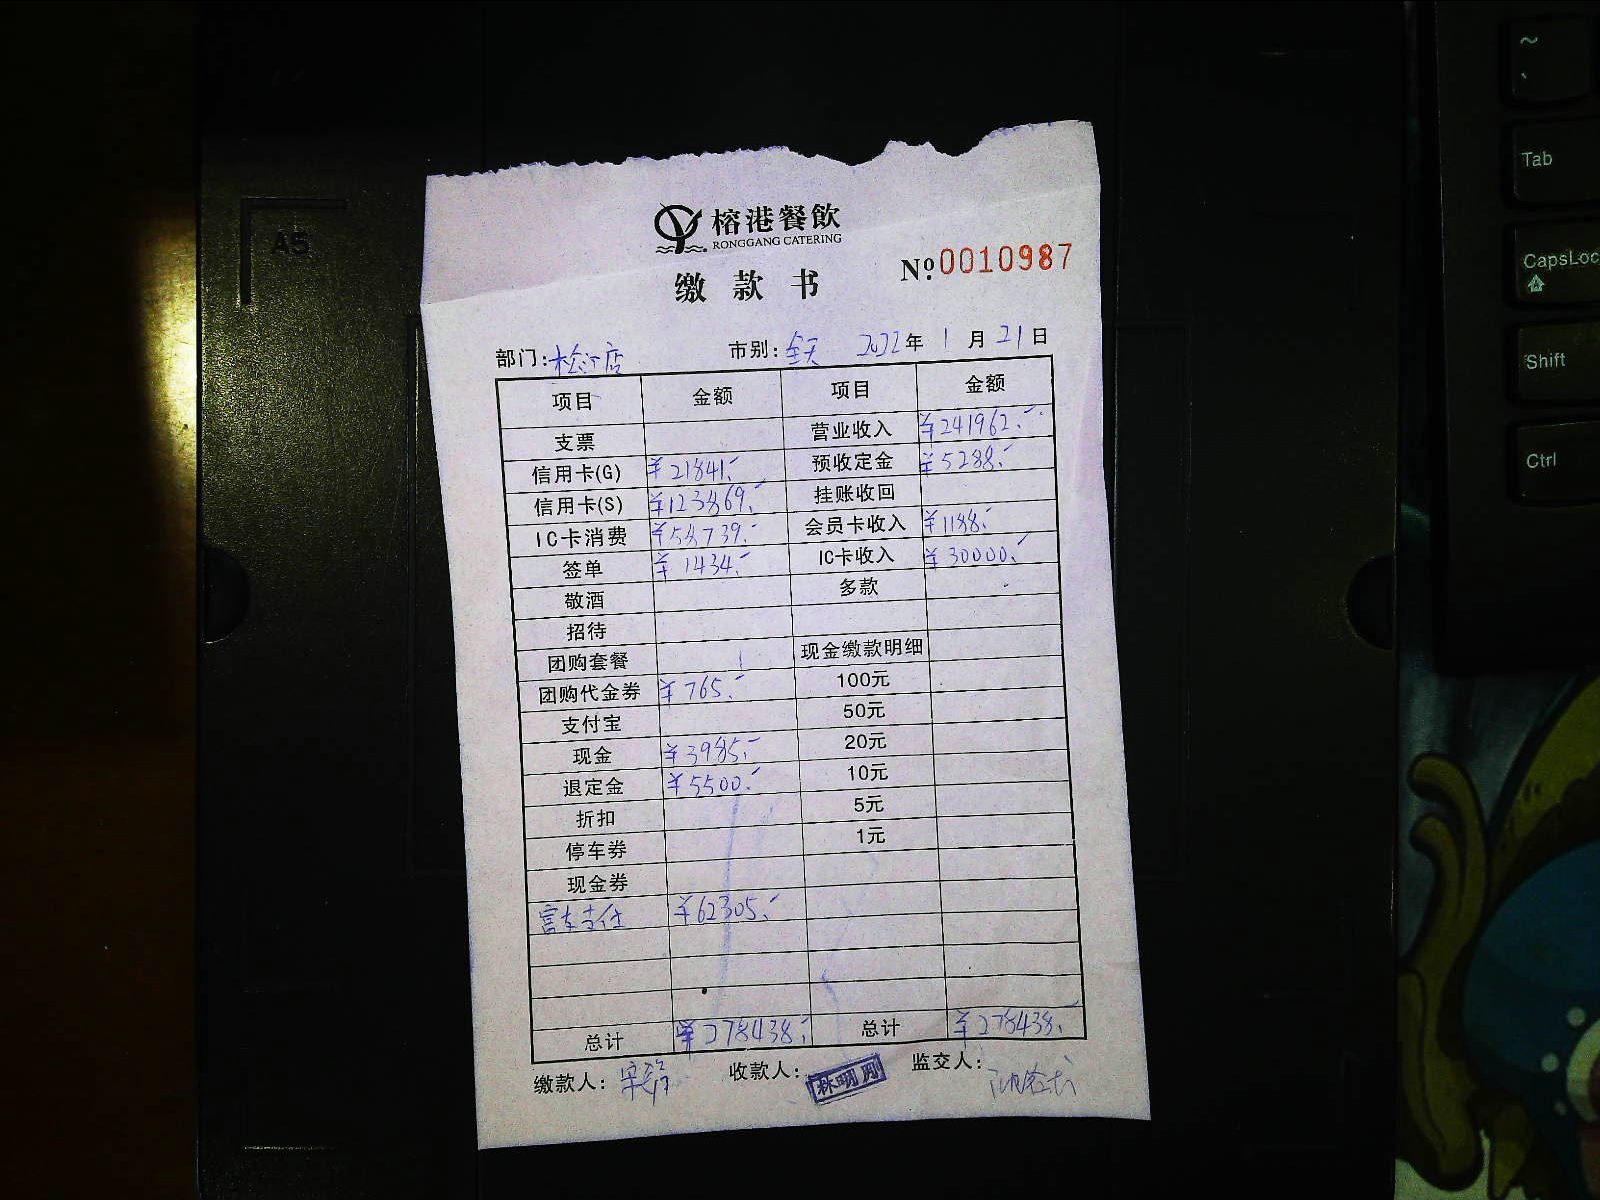 榕港餐飲
RONGGANG CATERING
缴 款 书 Nº 0010987
部门: 松江店 市别: 全天 2022年 1 月 21 日
项目 金额 项目 金额
支票 营业收入 ¥241962.-
信用卡(G) ¥21841.- 预收定金 ¥5288.-
信用卡(S) ¥123869.- 挂账收回
IC卡消费 ¥58739.- 会员卡收入 ¥1188.-
签单 ¥1434.- IC卡收入 ¥30000.-
敬酒 多款
招待
团购套餐 现金缴款明细
团购代金券 ¥765.- 100元
支付宝 50元
现金 ¥3985.- 20元
退定金 ¥5500.- 10元
折扣 5元
停车券 1元
现金券
富友支付 ¥62305.-
总计 ¥278438.- 总计 ¥278438.-
缴款人: 收款人: 监交人:
A5
~
`
Tab
CapsLoc
Shift
Ctrl